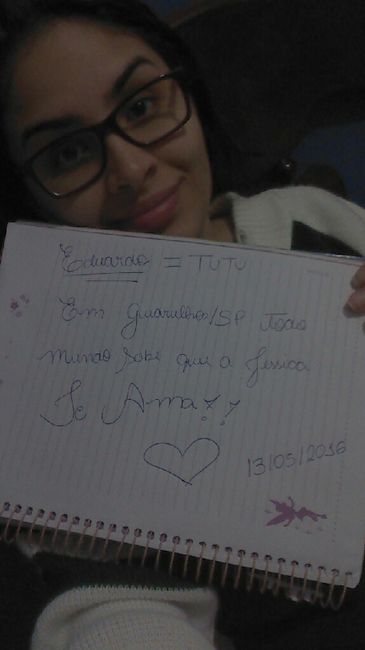 Eduardo = TUTU
Em Guarulhos/SP Todo
mundo sabe que a Jessica
Te Ama??
13/05/2016